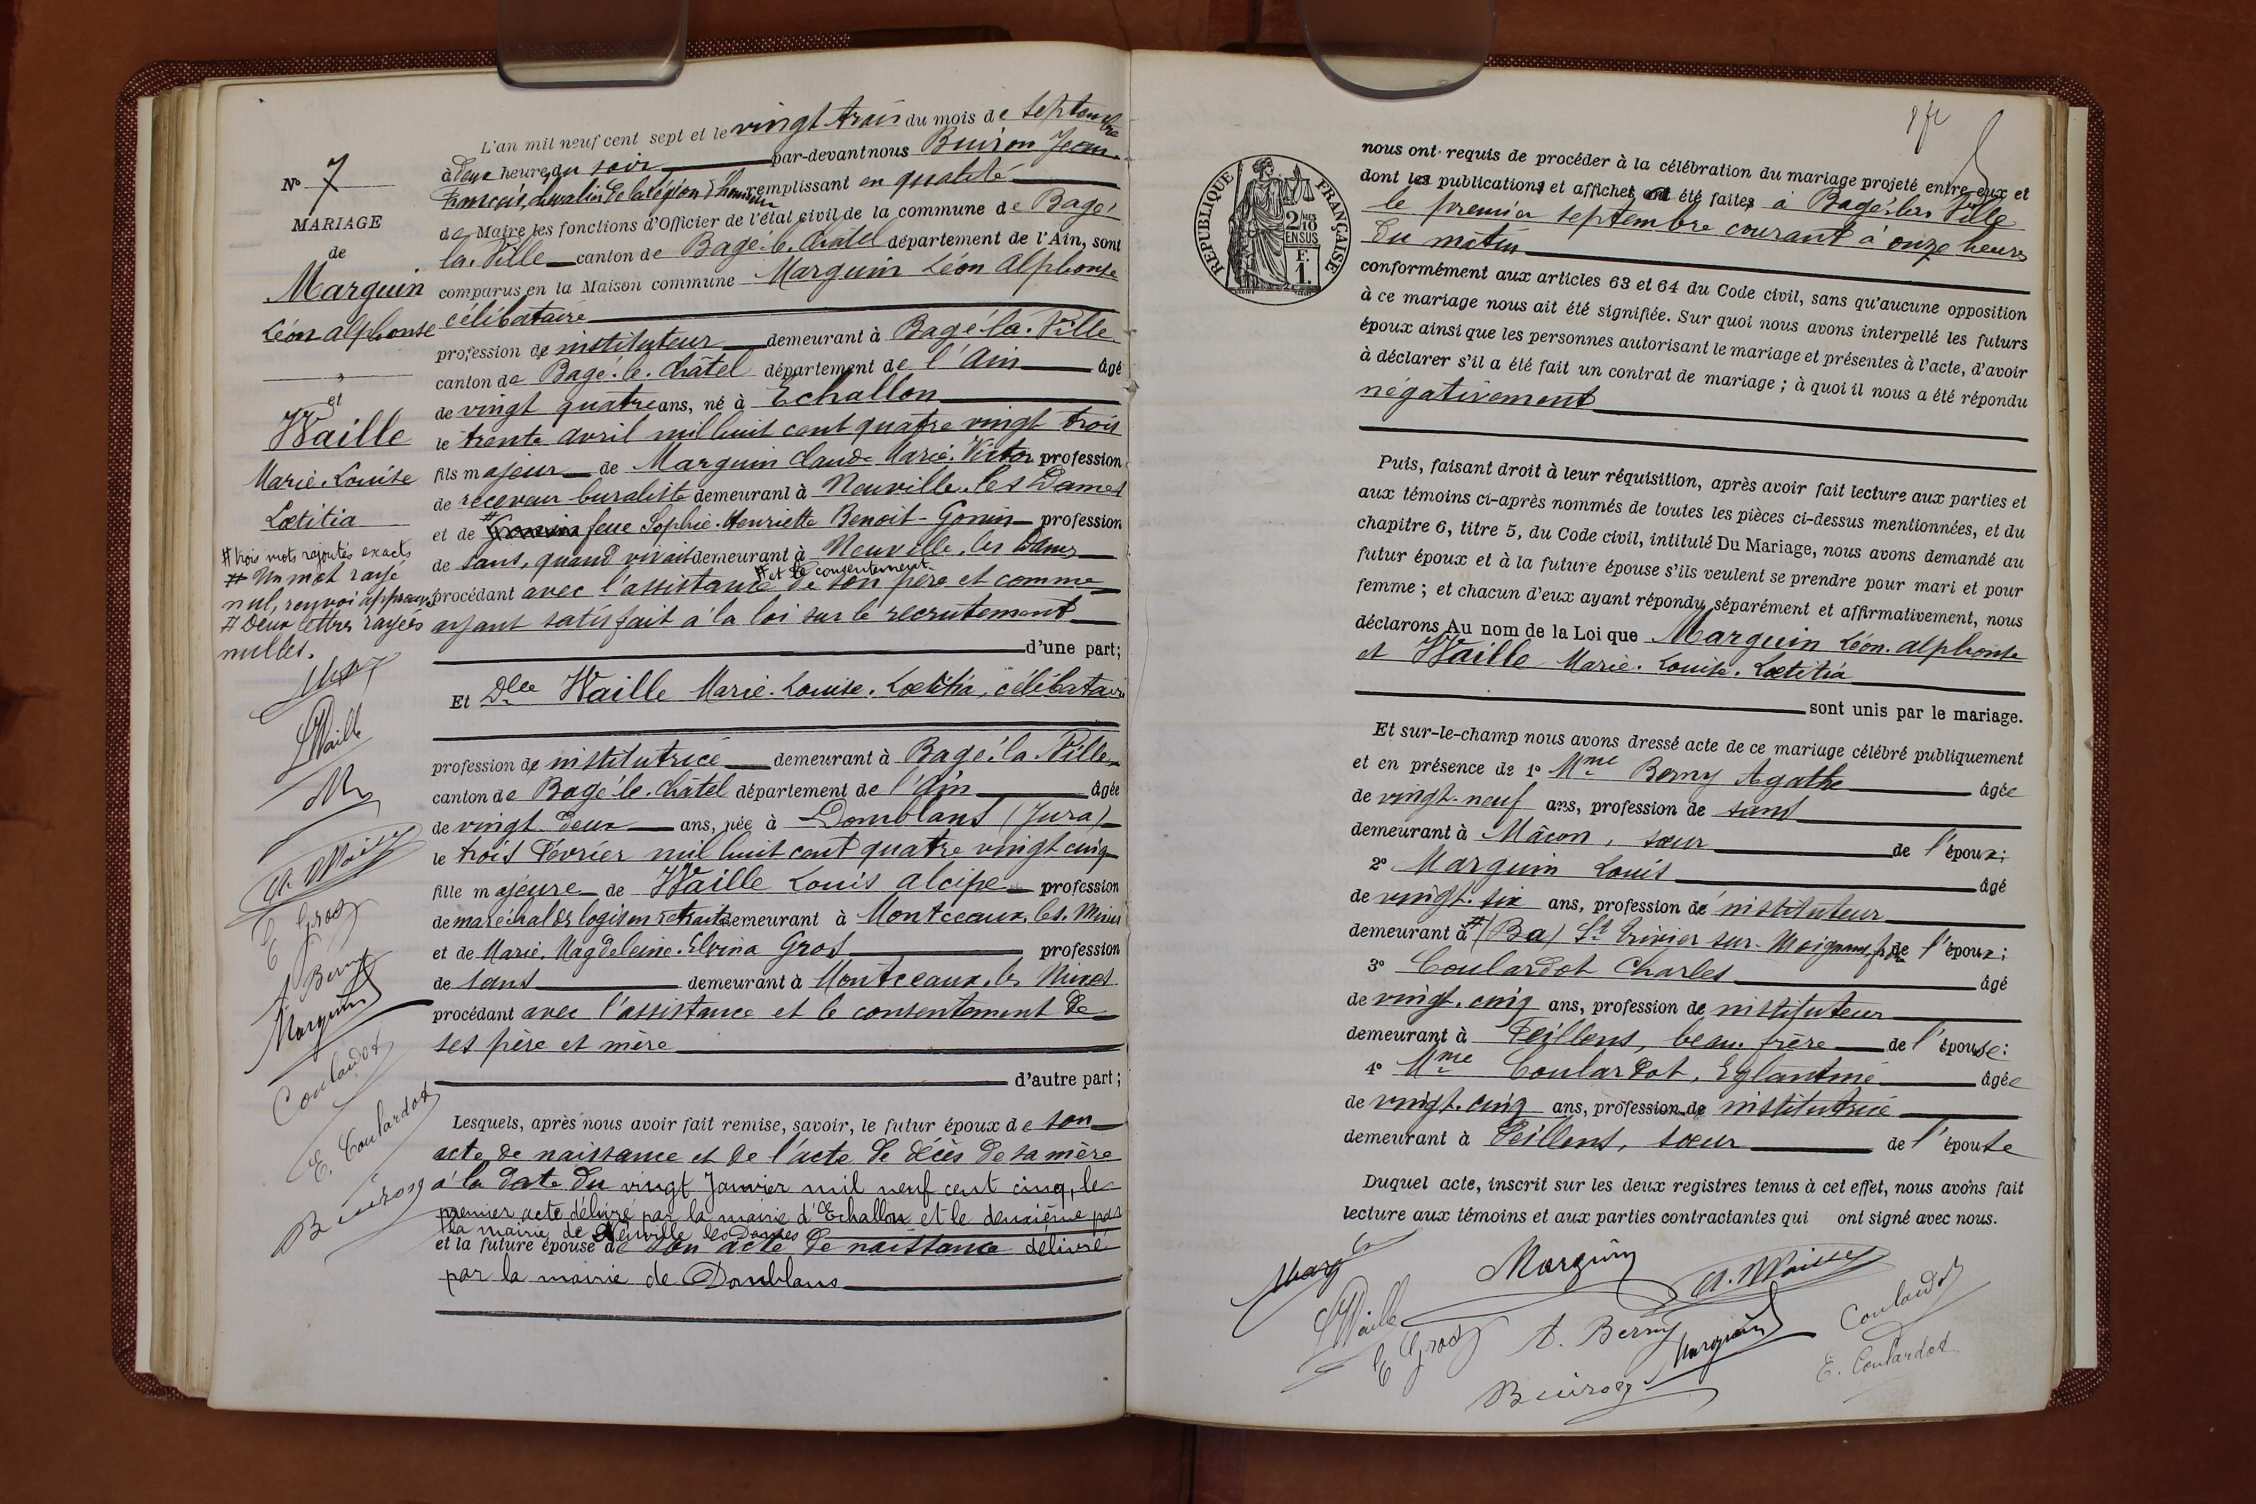 N° 7
MARIAGE
de
Marguin
Léon Alphonse
et
Waille
Marie. Louise
Lœtitia
# trois mots rajoutés exacts
# Un mot rayé
nul, renvoi approuvé
# Deux lettres rayées
nulles.
L Waille
A. Waille
E Gros
A Berny
Marguin
Coulardot
E. Coulardot
Buiron
L'an mil neuf cent sept et le vingt trois du mois de septembre
à deux heures du soir par-devant nous Buiron Jean-
François, chevalier de la légion d'honneur remplissant en qualité
de Maire les fonctions d'Officier de l'état civil de la commune de Bagé-
la-Ville canton de Bagé-le-Châtel département de l'Ain, sont
comparus en la Maison commune Marguin Léon Alphonse
célibataire
profession de instituteur demeurant à Bagé-la-Ville
canton de Bagé-le-Châtel département de l'Ain âgé
de vingt quatre ans, né à Echallon
le trente avril mil huit cent quatre vingt trois
fils majeur de Marguin Claude Marie-Victor profession
de receveur buraliste demeurant à Neuville-les Dames
et de # Gonin feue Sophie-Henriette Benoit-Gonin profession
de sans, quand vivait demeurant à Neuville-les Dames
# et le consentement
procédant avec l'assistance de son père et comme
ayant satisfait à la loi sur le recrutement
d'une part;
Et Dlle Waille Marie-Louise-Lœtitia, célibataire
profession de institutrice demeurant à Bagé-la-Ville
canton de Bagé-le-Châtel département de l'Ain âgée
de vingt deux ans, née à Domblans (Jura)
le trois Février mil huit cent quatre vingt cinq
fille majeure de Waille Louis Alcipe profession
de maréchal des logis en retraite demeurant à Montceaux-les-Mines
et de Marie-Magdeleine-Elvina Gros profession
de sans demeurant à Montceaux-les Mines
procédant avec l'assistance et le consentement de
ses père et mère
d'autre part;
Lesquels, après nous avoir fait remise, savoir, le futur époux de son
acte de naissance et de l'acte de décès de sa mère
à la date du vingt Janvier mil neuf cent cinq, le
premier acte délivré par la mairie d'Echallon et le deuxième par
la mairie de Neuville les Dames
et la future épouse de son acte de naissance délivré
par la mairie de Domblans
RÉPUBLIQUE FRANÇAISE
2/10
EN SUS
F.
1.
nous ont requis de procéder à la célébration du mariage projeté entre eux et
dont les publications et affiches ont été faites à Bagé-la-Ville
le premier septembre courant à onze heures
du matin
conformément aux articles 63 et 64 du Code civil, sans qu'aucune opposition
à ce mariage nous ait été signifiée. Sur quoi nous avons interpellé les futurs
époux ainsi que les personnes autorisant le mariage et présentes à l'acte, d'avoir
à déclarer s'il a été fait un contrat de mariage; à quoi il nous a été répondu
négativement
Puis, faisant droit à leur réquisition, après avoir fait lecture aux parties et
aux témoins ci-après nommés de toutes les pièces ci-dessus mentionnées, et du
chapitre 6, titre 5, du Code civil, intitulé Du Mariage, nous avons demandé au
futur époux et à la future épouse s'ils veulent se prendre pour mari et pour
femme; et chacun d'eux ayant répondu séparément et affirmativement, nous
déclarons Au nom de la Loi que Marguin Léon-Alphonse
et Waille Marie-Louise-Lœtitia
sont unis par le mariage.
Et sur-le-champ nous avons dressé acte de ce mariage célébré publiquement
et en présence de 1° Mme Berny Agathe âgée
de vingt-neuf ans, profession de sans
demeurant à Mâcon, sœur de l'époux;
2° Marguin Louis âgé
de vingt-six ans, profession de instituteur
demeurant à # (Ba) St Trivier sur-Moignans, frère de l'époux;
3° Coulardot Charles âgé
de vingt-cinq ans, profession de instituteur
demeurant à Feillens, beau-frère de l'épouse:
4° Mme Coulardot, Eglantine âgée
de vingt-cinq ans, profession de institutrice
demeurant à Feillens, sœur de l'épouse
Duquel acte, inscrit sur les deux registres tenus à cet effet, nous avons fait
lecture aux témoins et aux parties contractantes qui ont signé avec nous.
Marguin
A. Waille
L Waille
E Gros
A. Berny
Marguin
Coulardot
E. Coulardot
Buiron